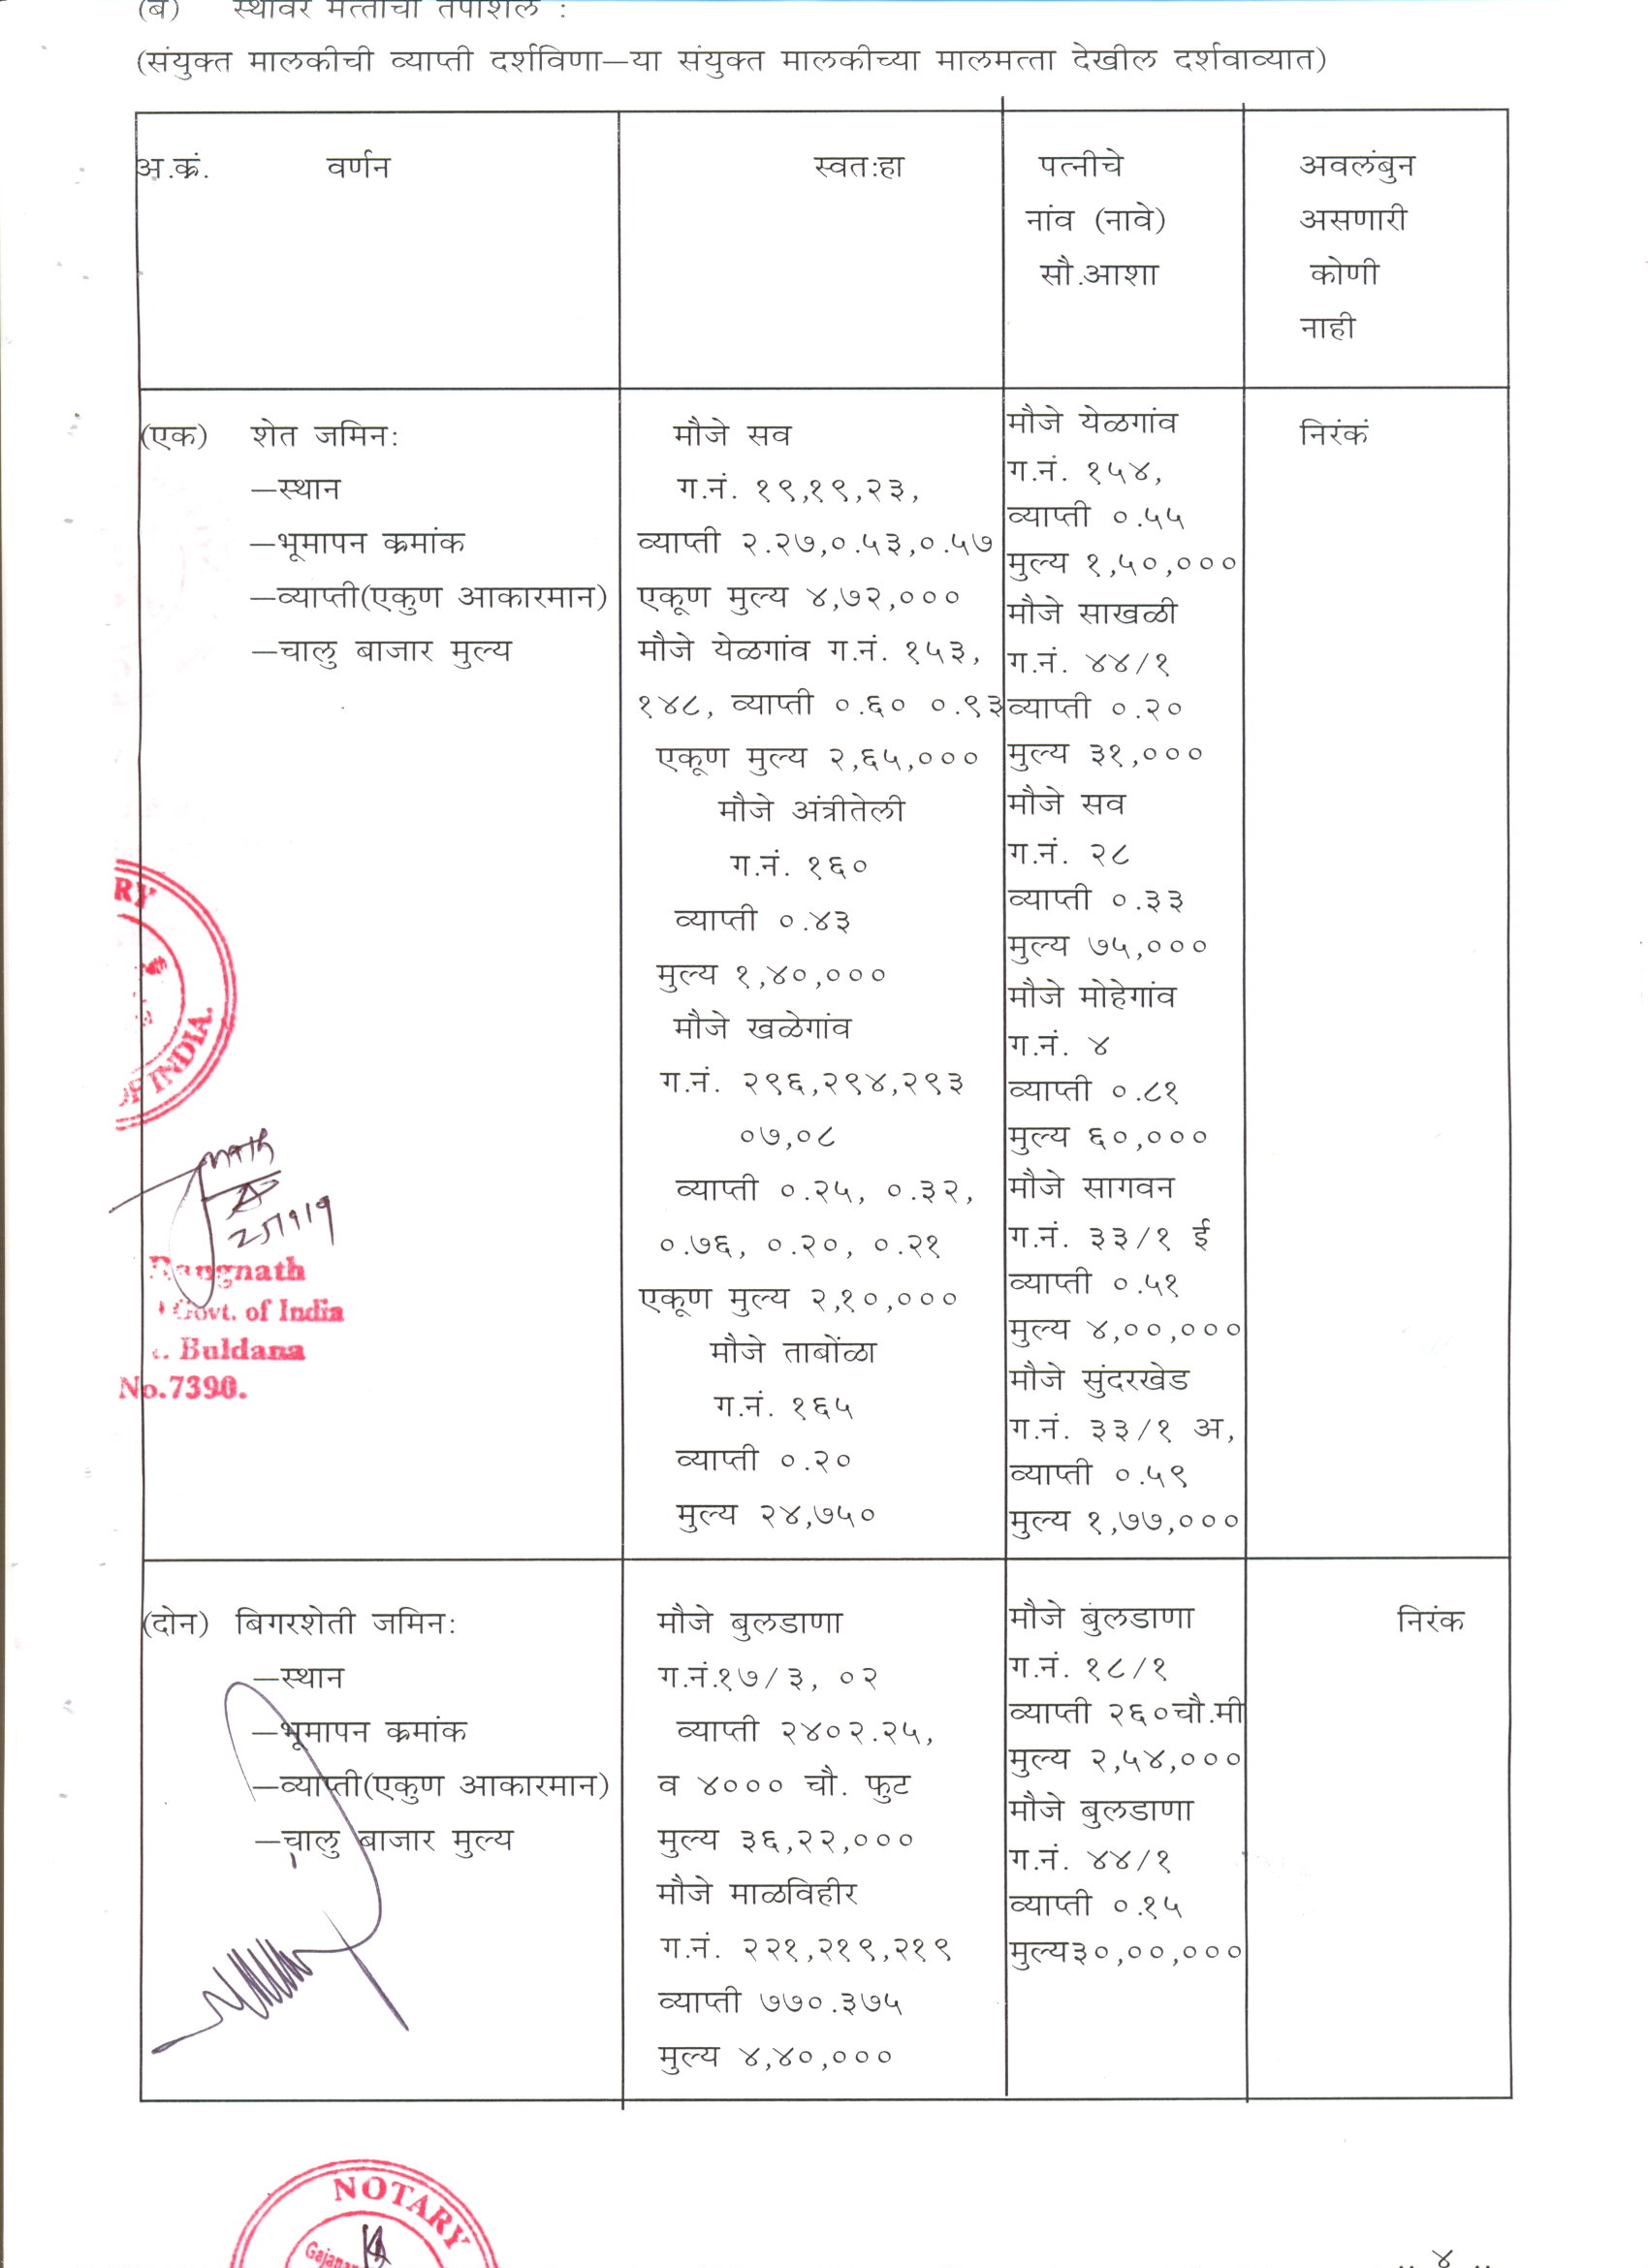 (ब) स्थावर मत्तांचा तपशिल :
(संयुक्त मालकीची व्याप्ती दर्शविणा—या संयुक्त मालकीच्या मालमत्ता देखील दर्शवाव्यात)
अ.क्रं. वर्णन
स्वतःहा
पत्नीचे
नांव (नावे)
सौ.आशा
अवलंबुन
असणारी
कोणी
नाही
(एक) शेत जमिन:
—स्थान
—भूमापन क्रमांक
—व्याप्ती(एकुण आकारमान)
—चालु बाजार मुल्य
मौजे सव
ग.नं. १९,१९,२३,
व्याप्ती २.२७,०.५३,०.५७
एकूण मुल्य ४,७२,०००
मौजे येळगांव ग.नं. १५३,
१४८, व्याप्ती ०.६० ०.९३
एकूण मुल्य २,६५,०००
मौजे अंत्रीतेली
ग.नं. १६०
व्याप्ती ०.४३
मुल्य १,४०,०००
मौजे खळेगांव
ग.नं. २९६,२९४,२९३
०७,०८
व्याप्ती ०.२५, ०.३२,
०.७६, ०.२०, ०.२१
एकूण मुल्य २,१०,०००
मौजे ताबोंळा
ग.नं. १६५
व्याप्ती ०.२०
मुल्य २४,७५०
मौजे येळगांव
ग.नं. १५४,
व्याप्ती ०.५५
मुल्य १,५०,०००
मौजे साखळी
ग.नं. ४४/१
व्याप्ती ०.२०
मुल्य ३१,०००
मौजे सव
ग.नं. २८
व्याप्ती ०.३३
मुल्य ७५,०००
मौजे मोहेगांव
ग.नं. ४
व्याप्ती ०.८१
मुल्य ६०,०००
मौजे सागवन
ग.नं. ३३/१ ई
व्याप्ती ०.५१
मुल्य ४,००,०००
मौजे सुंदरखेड
ग.नं. ३३/१ अ,
व्याप्ती ०.५९
मुल्य १,७७,०००
निरंकं
RY
OF INDIA.
Rangnath
Govt. of India
Buldana
No.7390.
(दोन) बिगरशेती जमिन:
—स्थान
—भूमापन क्रमांक
—व्याप्ती(एकुण आकारमान)
—चालु बाजार मुल्य
मौजे बुलडाणा
ग.नं.१७/३, ०२
व्याप्ती २४०२.२५,
व ४००० चौ. फुट
मुल्य ३६,२२,०००
मौजे माळविहीर
ग.नं. २२१,२१९,२१९
व्याप्ती ७७०.३७५
मुल्य ४,४०,०००
मौजे बुलडाणा
ग.नं. १८/१
व्याप्ती २६०चौ.मी
मुल्य २,५४,०००
मौजे बुलडाणा
ग.नं. ४४/१
व्याप्ती ०.१५
मुल्य३०,००,०००
निरंक
NOTARY
.. ४ ..